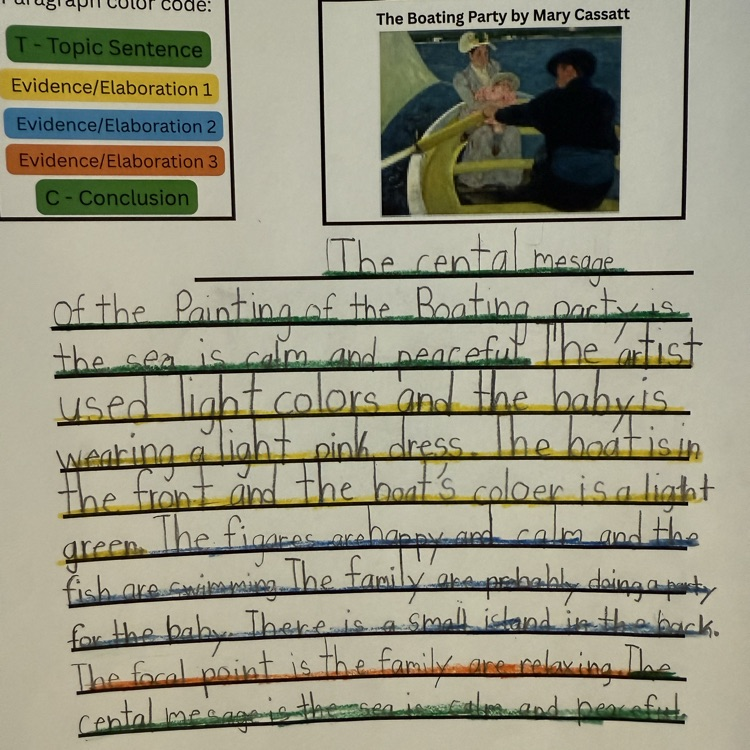 Paragraph color code:
T - Topic Sentence
Evidence/Elaboration 1
Evidence/Elaboration 2
Evidence/Elaboration 3
C - Conclusion
The Boating Party by Mary Cassatt
The cental mesage
of the Painting of the Boating party is
the sea is calm and peaceful. The artist
used light colors and the baby is
wearing a light pink dress. The boat is in
the front and the boat's coloer is a light
green. The figares are happy and calm and the
fish are swimming. The family are probably doing a party
for the baby. There is a small island in the back.
The focal point is the family are relaxing. The
cental mesage is the sea is calm and peaceful.